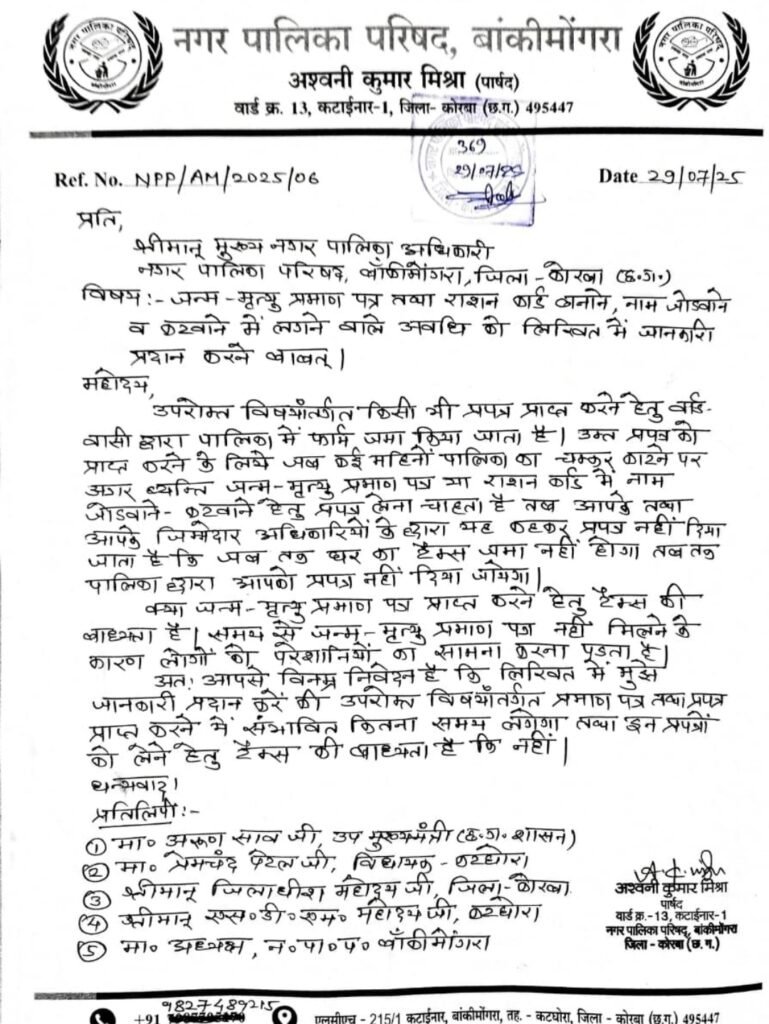 नगर पालिका परिषद, बांकीमोंगरा
अश्वनी कुमार मिश्रा (पार्षद)
वार्ड क्र. 13, कटाईनार-1, जिला- कोरबा (छ.ग.) 495447
369
29/07/25
Ref. No. NPP/AM/2025/06
Date 29/07/25
प्रति,
श्रीमान् मुख्य नगर पालिका अधिकारी
नगर पालिका परिषद, बाँकीमोंगरा, जिला - कोरबा (छ.ग.)
विषय:- जन्म-मृत्यु प्रमाण पत्र तथा राशन कार्ड बनाने, नाम जोडवाने
व कटवाने में लगने वाले अवधि को लिखित में जानकारी
प्रदान करने बाबत् |
महोदय,
उपरोक्त विषयांतर्गत किसी भी प्रपत्र प्राप्त करने हेतु वार्ड-
वासी द्वारा पालिका में फार्म जमा किया जाता है | उक्त प्रपत्र को
प्राप्त करने के लिये जब कई महिनों पालिका का चक्कर काटने पर
अगर व्यक्ति जन्म-मृत्यु प्रमाण पत्र या राशन कार्ड में नाम
जोडवाने- कटवाने हेतु प्रपत्र लेना चाहता है तब आपके तथा
आपके जिम्मेदार अधिकारियों के द्वारा यह कहकर प्रपत्र नहीं दिया
जाता है कि जब तक घर का टैक्स जमा नहीं होगा तब तक
पालिका द्वारा आपको प्रपत्र नहीं दिया जायेगा |
क्या जन्म-मृत्यु प्रमाण पत्र प्राप्त करने हेतु टैक्स की
बाध्यता है | समय से जन्म-मृत्यु प्रमाण पत्र नहीं मिलने के
कारण लोगों को परेशानियों का सामना करना पड़ता है |
अतः आपसे विनम्र निवेदन है कि लिखित में मुझे
जानकारी प्रदान करें की उपरोक्त विषयांतर्गत प्रमाण पत्र तथा प्रपत्र
प्राप्त करने में संभावित कितना समय लगेगा तथा इन प्रपत्रों
को लेने हेतु टैक्स की बाध्यता है कि नहीं |
धन्यवाद |
प्रतिलिपी:-
① मा० अरुण साव जी, उप मुख्यमंत्री (छ.ग. शासन)
② मा० प्रेमचंद पटेल जी, विधायक - कटघोरा
③ श्रीमान् जिलाधीश महोदय जी, जिला-कोरबा
④ श्रीमान् एस०डी०एम० महोदय जी, कटघोरा
⑤ मा० अध्यक्ष, न०पा०प० बाँकीमोंगरा
अश्वनी कुमार मिश्रा
पार्षद
वार्ड क्र.-13, कटाईनार-1
नगर पालिका परिषद, बांकीमोंगरा
जिला - कोरबा (छ.ग.)
9827489215
+91
एलमीएच - 215/1 कटाईनार, बांकीमोंगरा, तह. - कटघोरा, जिला - कोरबा (छ.ग.) 495447